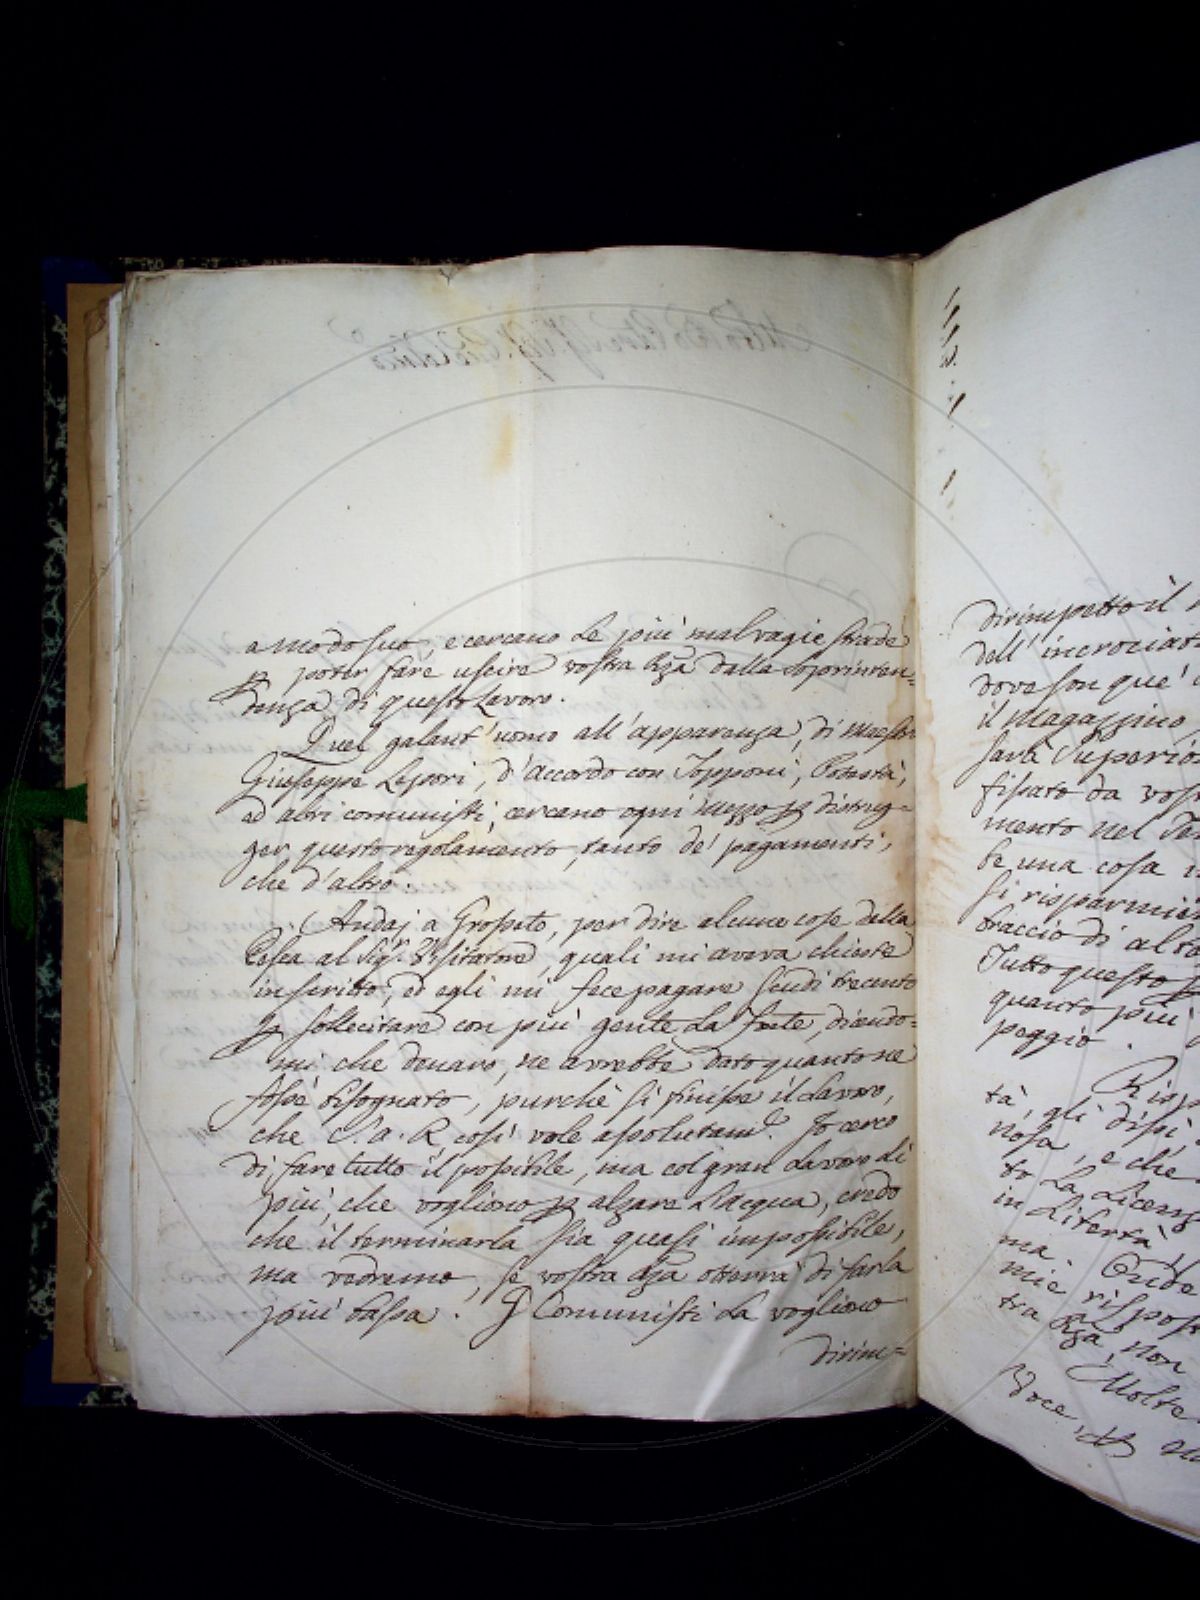 a modo suo, e cercano le più malvagie strade
p poter fare uscire vostra Rza dalla soprinten=
denza di questo Lavoro.
Quel galant'uomo all'apparenza, di Maestr
Giuseppe Lepori, d'accordo con Topponi, Potestà,
ad altri comunisti, cercano ogni mezzo p distrug=
ger questo regolamento, tanto de' pagamenti,
che d'altro.
Andaj a Grosseto, per dire alcune cose della
Pesca al Sigr. Visitatore, quali mi aveva chieste
in scritto, ed egli mi fece pagare scudi trecento
p sollecitare con più gente La , dicendo=
mi che denaro, ne avrebbe dato quanto ne
fosse bisognato, purchè si finisse il Lavoro,
che S. A. R. così vole assolutamte. Io cerco
di fare tutto il possibile, ma col gran Lavoro di
più, che vogliono p alzare L'acqua, credo
che il terminarla sia quasi impossibile,
ma vedremo, se vostra Rza otterrà di farla
più bassa. I Comunisti La vogliono
dirim=
dirimpetto il
dell' incrociat
dove son que'
il Magazzino
sarà superio
fissato da vost
mento nel Te
be una cosa
si risparmi
braccio di alt
Tutto questo p
quanto più
peggio.
Risp
tà, gli dissi
nosa, e che
to La Licenz
in Libertà
ma. Onde
mie rispost
tra Rza non
Molte
Voce, p